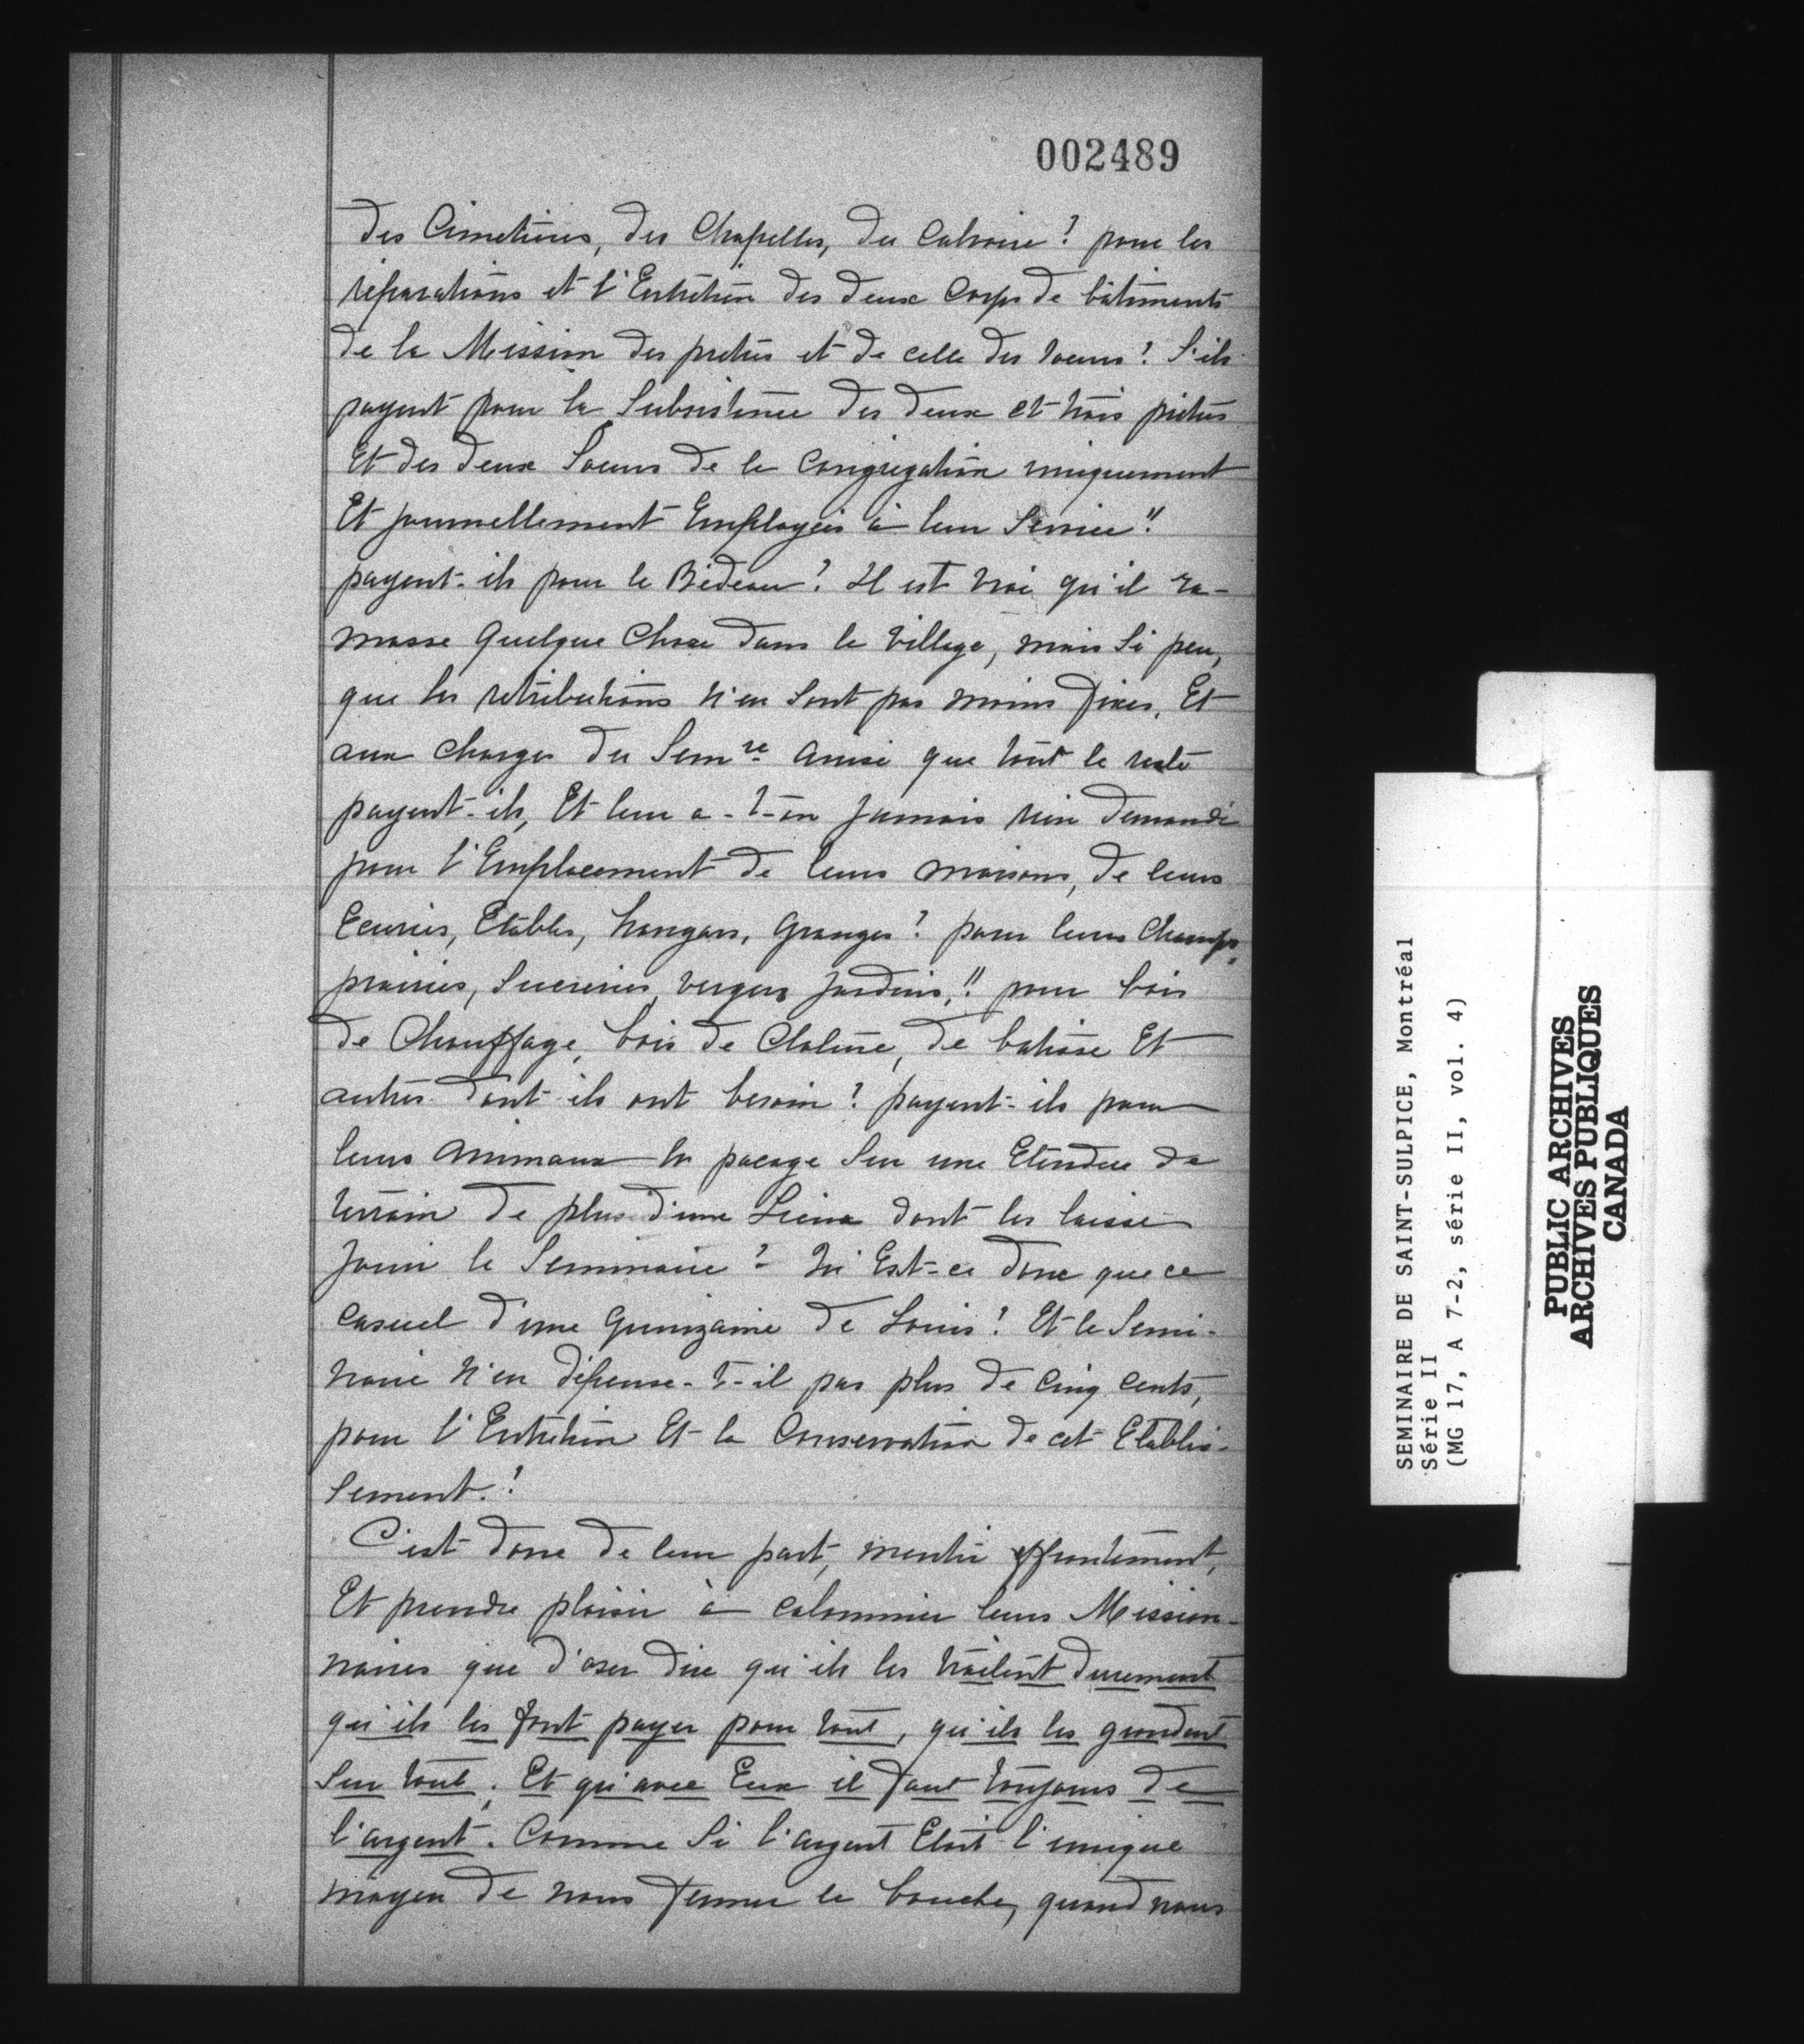 002489
des Cimetières, des Chapelles, du Calvaire? pour les
réparations et l'Entretien des deux Corps de bâtiments
de la Mission des prêtres et de celle des soeurs? S'ils
payent pour la Subsistence des deux et trois prêtres
Et des deux Soeurs de la Congrégation uniquement
Et journellement Employées à leur Service!!
payent-ils pour le Bédeau? Il est vrai qu'il ra-
masse quelque Chose dans le village, mais Si peu,
que les retributions n'en Sont pas moins fixes, Et
aux charges du Semre ainsi que tout le reste
payent-ils, Et leur a-t-on Jamais rien demandé
pour l'Emplacement de leurs maisons, de leurs
Ecuries, Etables, hangars, granges? pour leurs Champs,
prairies, Sucreries, vergers Jardins,!! pour bois
de Chauffage, bois de Cloture, de batisse Et
autres dont ils ont besoin? payent-ils pour
leurs animaux le pacage Sur une Etendue de
terrain de plus d'une Lieue dont les laisse
Jouir le Seminaire? Est-ce donc que ce
casuel d'une Quinzaine de Louis? Et le Semi-
naire n'en dépense-t-il pas plus de cinq cents,
pour l'Entretien Et la Conservation de cet Etablis-
sement.?
C'est donc de leur part, mentir effrontément,
Et prendre plaisir à calomnier leurs Mission-
naires que d'oser dire qu'ils les traitent durement
qu'ils les font payer pour tout, qu'ils les grondent
Sur tout, Et qu'avec Eux il faut toujours de
l'argent. Comme Si l'argent Etoit l'unique
moyen de nous fermer la bouche, quand nous
SEMINAIRE DE SAINT-SULPICE, Montréal
Série II
(MG 17, A 7-2, série II, vol. 4)
PUBLIC ARCHIVES
ARCHIVES PUBLIQUES
CANADA